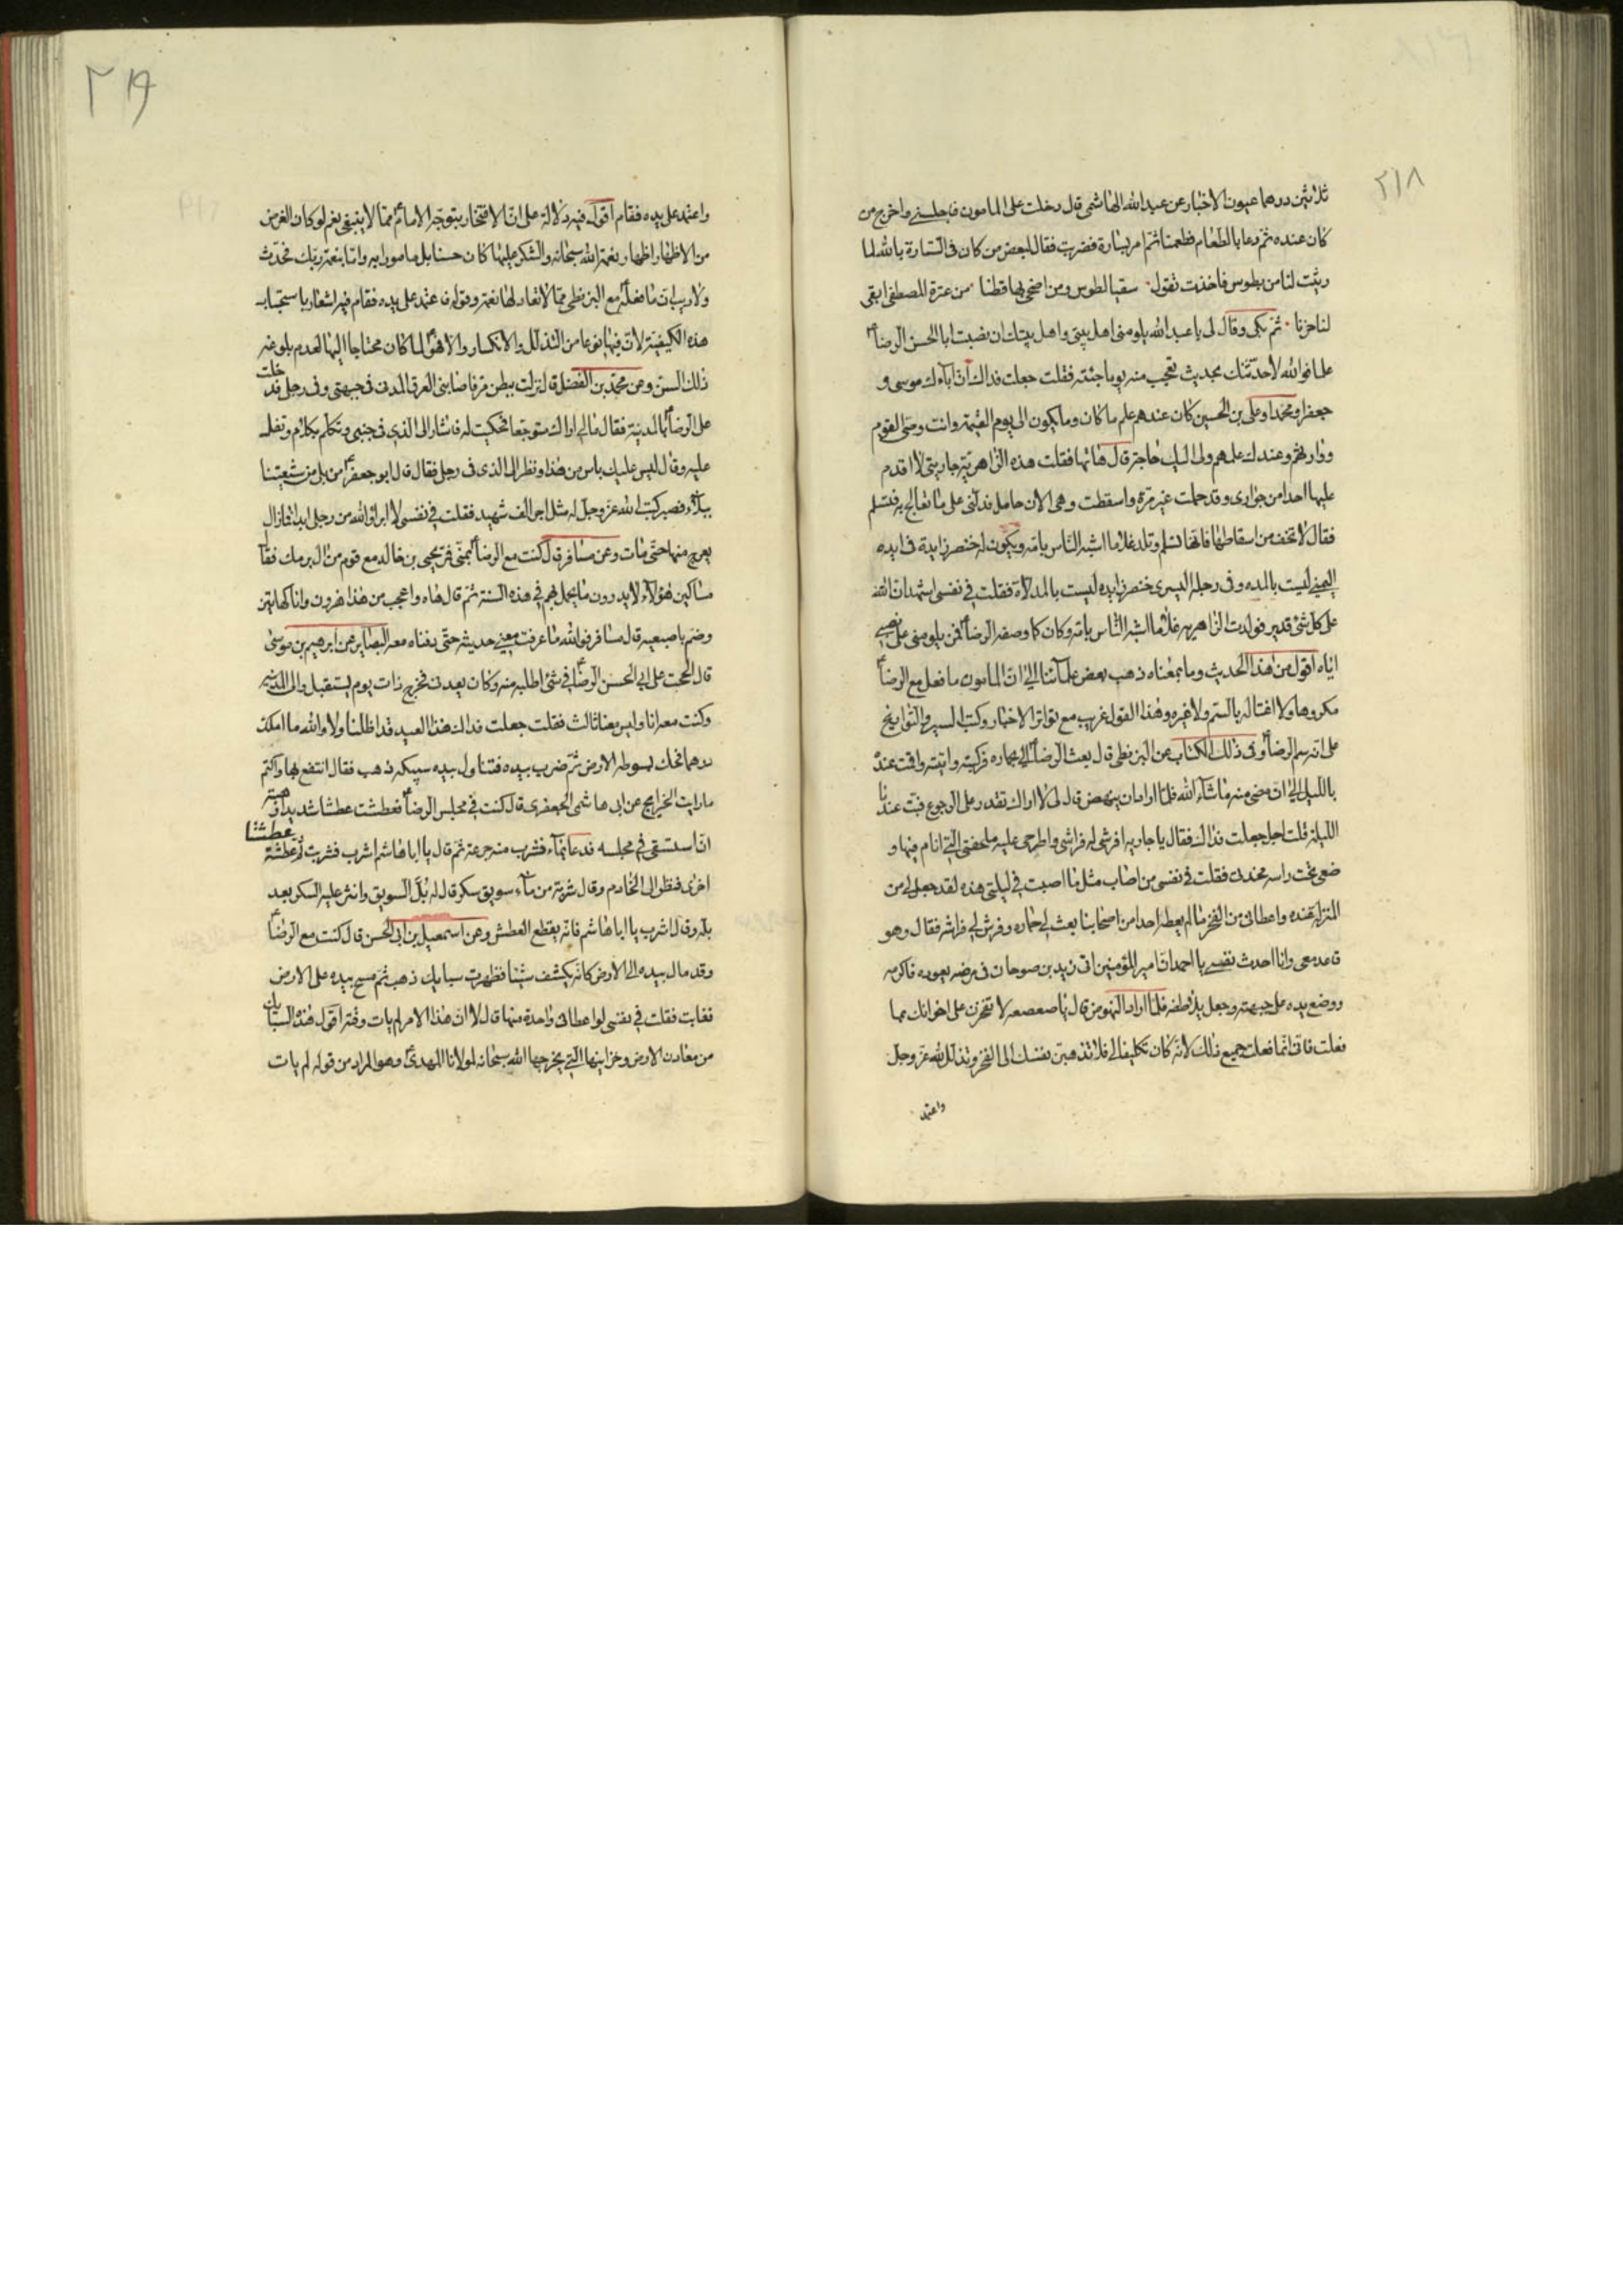 ٢١٨
ثلاثين درهما عيون الاخبار عن عبد الله الهاشمي قال دخلت على المامون فاجلسني واخرج من
كان عنده ثم دعا بالطعام فطعمنا ثم امر بستارة فضربت فقال لبعض من كان في الستارة بالله لما
رثيت لنا من بطوس فاخذت تقول سقيا لطوس ومن اضحى بها قطنا من عترة المصطفى ابقى
لنا حزنا ثم بكى وقال لي يا عبد الله يلومني اهل بيتي واهل بيتك ان نصبت ابا الحسن الرضا ع
علما فوالله لاحدثنك بحديث تعجب منه يوما جئته فقلت جعلت فداك ان آباءك موسى و
جعفرا ومحمدا وعلي بن الحسين كان عندهم علم ما كان وما يكون الى يوم القيمة وانت وصي القوم
ووارثهم وعندك علمهم ولي اليك حاجة قال هاتها فقلت هذه الزاهرية جاريتي لا اقدم
عليها احدا من جواري وقد حملت غير مرة واسقطت وهي الان حامل فدلني على ما تعالج به فتسلم
فقال لا تخف من اسقاطها فانها تسلم وتلد غلاما اشبه الناس بامه ويكون له خنصر زايدة في يده
اليمنى ليست بالمده وفي رجله اليسرى خنصر زايده ليست بالمدلاة فقلت في نفسي اشهد ان الله
على كل شئ قدير فولدت الزاهريه غلاما اشبه الناس بامه وكان كما وصفه الرضا ع فمن يلومني على نصبي
اياه اقول من هذا الحديث وما بمعناه ذهب بعض علمآئنا الى ان المامون ما فعل مع الرضا ع
مكروها ولا اغتاله بالسم ولا غيره وهذا القول غريب مع تواتر الاخبار وكتب السير والتواريخ
على انه سم الرضا ع وفي ذلك الكتاب عن البزنطي قال بعث الرضا ع الي بحماره فركبته واتيته واقمت عنده
بالليل الى ان مضى منه ما شآء الله فلما اراد ان ينهض قال لي لا اراك تقدر على الرجوع فبت عندنا
الليلة قلت اجل جعلت فداك فقال يا جاريه افرشي له فراشي واطرحي عليه ملحفتي التي انام فيها و
ضعي تحت راسه مخدتي فقلت في نفسي من اصاب مثل ما اصبت في ليلتي هذه لقد جعل لي من
المنزلة عنده واعطاني من الفخر ما لم يعطه احدا من اصحابنا بعث لي حماره وفرش لي فراشه فقال وهو
قاعد معي وانا احدث نفسي يا احمد ان امير المؤمنين اتى زيد بن صوحان في مرضه يعوده فاكرمه
ووضع يده على جبهته وجعل يلاطفه فلما اراد النهوض قال يا صعصعه لا تفخرن على اخوانك بما
فعلت فاني انما فعلت جميع ذلك لانه كان تكليفا لي فلا تذهبن نفسك الى الفخر وتذلل لله عز وجل
واعتمد
٢١٩
واعتمد على يده فقام اقول فيه دلالة على ان الافتخار بتوجه الامام ع مما لا ينبغي نعم لو كان الغرض
من الاظهار اظهار نعمة الله سبحانه والشكر عليها كان حسنا بل مامورا به واما بنعمة ربك فحدث
ولا ريب ان ما فعله ع مع البزنطي مما لا تعادلها نعمة وقوله فاعتمد على يده فقام فيه اشعار باستحباب
هذه الكيفية لان فيها نوعا من التذلل والانكسار والا فهو ع لما كان محتاجا اليها لعدم بلوغه
ذلك السن وعن محمد بن الفضل قال نزلت ببطن مر فاصابني العرق المدني في جنبي وفي رجلي فدخلت
على الرضا ع بالمدينة فقال مالي اراك متوجعا فحكيت له فاشار الى الذي في جنبي وتكلم بكلام وتفل
عليه وقال ليس عليك باس من هذا ونظر الى الذي في رجلي فقال قال ابو جعفر ع من بلي من شيعتنا
ببلآء فصبر كتب الله عز وجل له مثل اجر الف شهيد فقلت في نفسي لا ابرأ والله من رجلي ابدا فما زال
يعرج منها حتى مات وعن مسافر قال كنت مع الرضا ع بمنى فمر يحيى بن خالد مع قوم من ال برمك فقال
مساكين هؤلآء لا يدرون ما يحل بهم في هذه السنة ثم قال هاه واعجب من هذا هرون وانا كهاتين
وضم باصبعيه قال مسافر فوالله ما عرفت معنى حديثه حتى دفناه معه البصاير عن ابرهيم بن موسى
قال الححت على ابي الحسن الرضا ع في شئ اطلبه منه وكان يعدني فخرج ذات يوم ليستقبل والي المدينه
وكنت معه انا وليس معنا ثالث فقلت جعلت فداك هذا العيد قد اظلنا ولا والله ما املك
درهما فحك بسوطه الارض ثم ضرب بيده فتناول بيده سبيكه ذهب فقال انتفع بها واكتم
ما رايت الخرايج عن ابي هاشم الجعفري قال كنت في مجلس الرضا ع فعطشت عطشا شديدا فهبته
ان استسقي في مجلسه فدعا بمآء فشرب منه جرعة ثم قال يا ابا هاشم اشرب فشربت ثم عطشت عطشة
اخرى فنظر الى الخادم وقال شربة من مآء سويق سكر قال له بل السويق وانثر عليه السكر بعد
بله وقال اشرب يا ابا هاشم فانه يقطع العطش وعن اسمعيل بن ابي الحسن قال كنت مع الرضا ع
وقد مال بيده الى الارض كانه يكشف شيئا فظهرت سبايك ذهب ثم مسح بيده على الارض
فغابت فقلت في نفسي لو اعطاني واحدة منها قال لا ان هذا الامر لم يات وقته اقول هذه السبايك
من معادن الارض وخزاينها التي يخرجها الله سبحانه لمولانا المهدي ع وهو المراد من قوله لم يات